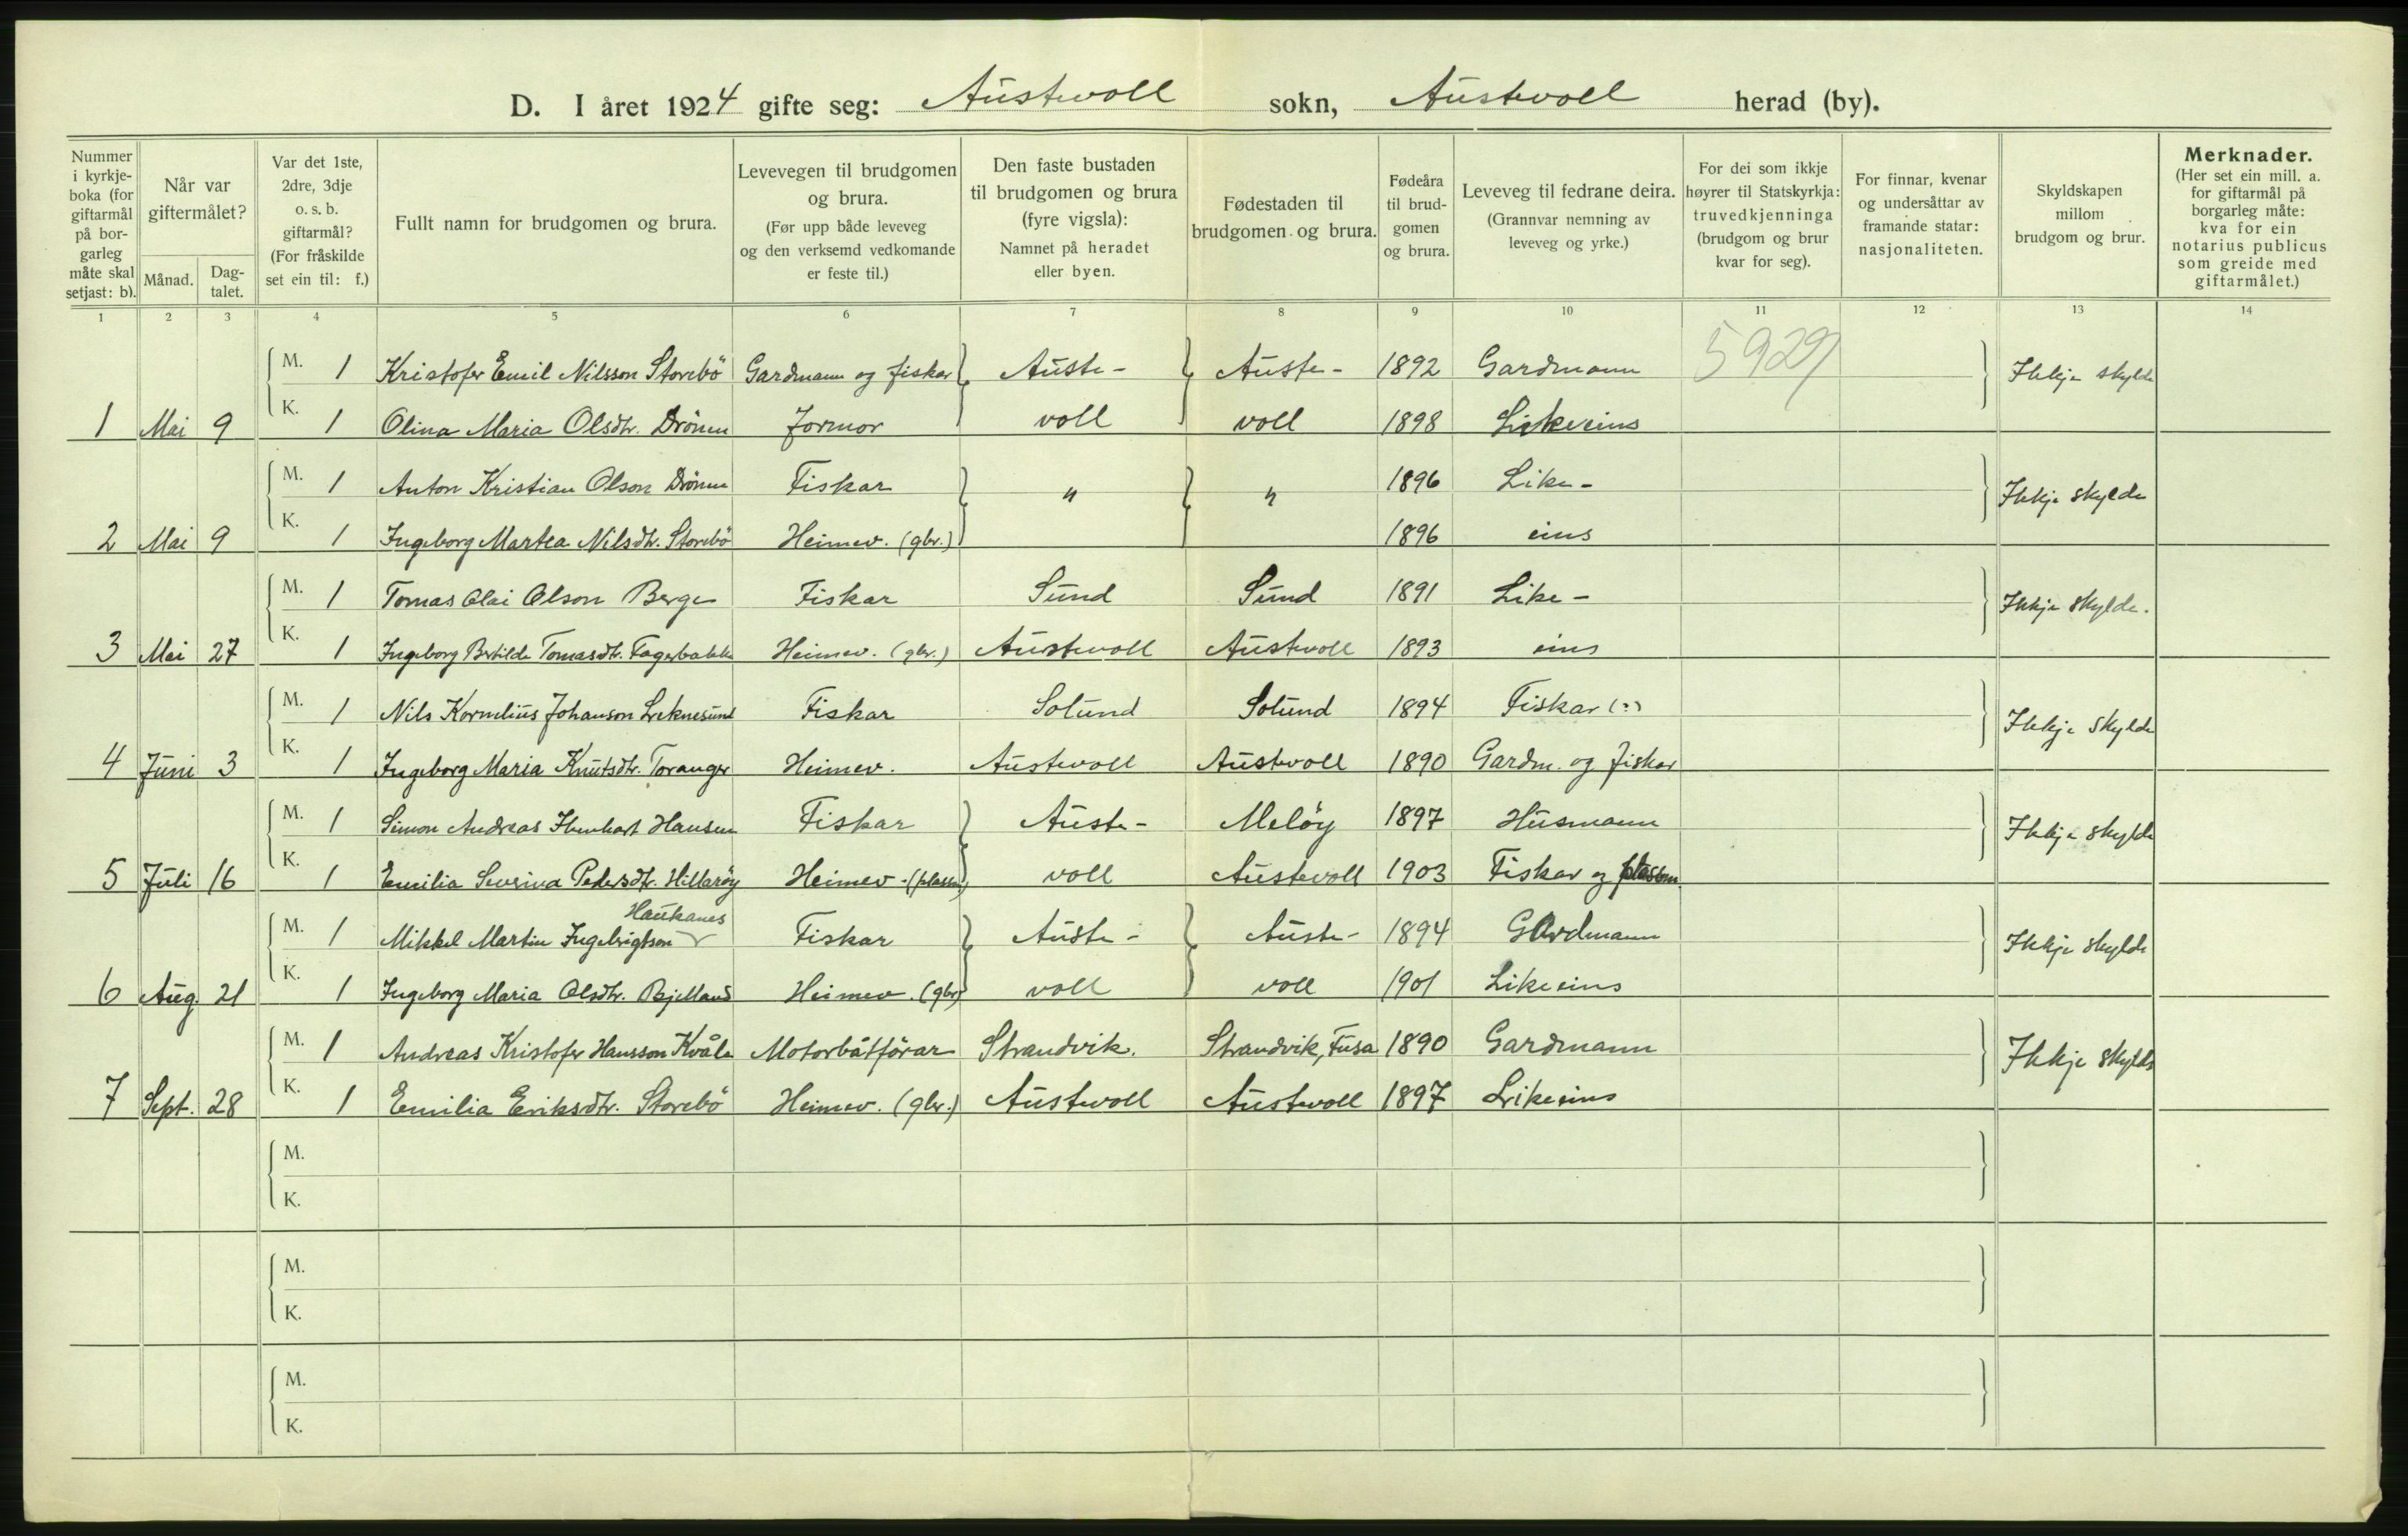 D. I året 1924 gifte seg: Austevoll sokn, Austevoll herad (by).
Nummer i kyrkje-boka (for giftarmål på bor-garleg måte skal setjast: b).
Når var giftermålet?
Månad.
Dag-talet.
Var det 1ste, 2dre, 3dje o. s. b. giftarmål? (For fråskilde set ein til: f.)
Fullt namn for brudgomen og brura.
Levevegen til brudgomen og brura. (Før upp både leveveg og den verksemd vedkomande er feste til.)
Den faste bustaden til brudgomen og brura (fyre vigsla): Namnet på heradet eller byen.
Fødestaden til brudgomen og brura.
Fødeåra til brud-gomen og brura.
Leveveg til fedrane deira. (Grannvar nemning av leveveg og yrke.)
For dei som ikkje høyrer til Statskyrkja: truvedkjenninga (brudgom og brur kvar for seg).
For finnar, kvenar og undersåttar av framande statar: nasjonaliteten.
Skyldskapen millom brudgom og brur.
Merknader. (Her set ein mill. a. for giftarmål på borgarleg måte: kva for ein notarius publicus som greide med giftarmålet.)
1 2 3 4 5 6 7 8 9 10 11 12 13 14
M. 1 Kristofer Emil Nilsson Storebö Gardmann og fiskar Auste- Auste- 1892 Gardmann 5929 Ikkje skylde
1 Mai 9 K. 1 Olina Maria Olsdtr. Drönen Jormor voll voll 1898 Likeeins
M. 1 Anton Kristian Olson Drönen Fiskar " " 1896 Like- Ikkje skylde
2 Mai 9 K. 1 Ingeborg Martea Nilsdtr. Storebö Heimev. (gbr.) 1896 eins
M. 1 Tomas Olai Olson Berge Fiskar Sund Sund 1891 Like- Ikkje skylde.
3 Mai 27 K. 1 Ingeborg Bertilde Tomasdtr. Fagerbakke Heimev. (gbr.) Austevoll Austevoll 1893 eins
M. 1 Nils Kornelius Johanson Leknesund Fiskar Solund Solund 1894 Fiskar (?) Ikkje skylde
4 Juni 3 K. 1 Ingeborg Maria Knutsdtr. Toranger Heimev. Austevoll Austevoll 1890 Gardm. og fiskar
M. 1 Simon Andreas Hansen Fiskar Auste- Melöy 1897 Husmann Ikkje skylde
5 Juli 16 K. 1 Emilia Severina Pedersdtr. Hillaröy Heimev. (plassm) voll Austevoll 1903 Fiskar og plassm.
Haukanes
M. 1 Mikkel Martin Ingebrigtson Fiskar Auste- Auste- 1894 Gardmann Ikkje skylde
6 Aug. 21 K. 1 Ingeborg Maria Olsdtr. Bjelland Heimev. (gbr) voll voll 1901 Likeeins
M. 1 Andreas Kristofer Hansson Kvåle Motorbåtförar Strandvik. Strandvik, Fusa 1890 Gardmann Ikkje skylde
7 Sept. 28 K. 1 Emilia Eriksdtr. Storebö Heimev. (gbr.) Austevoll Austevoll 1897 Likeeins
M.
K.
M.
K.
M.
K.